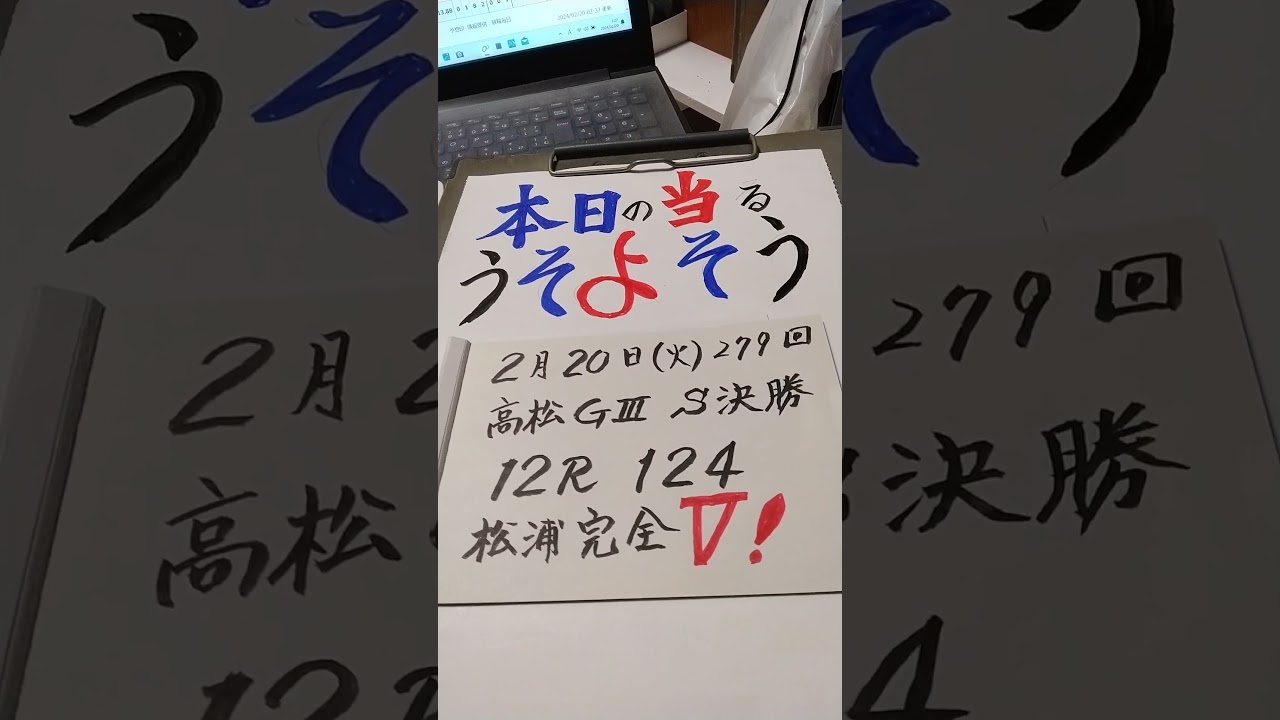 2024/02/20
本日の当る
うそよそう
2月20日(火)279回
高松GⅢ S決勝
12R 124
松浦完全V!